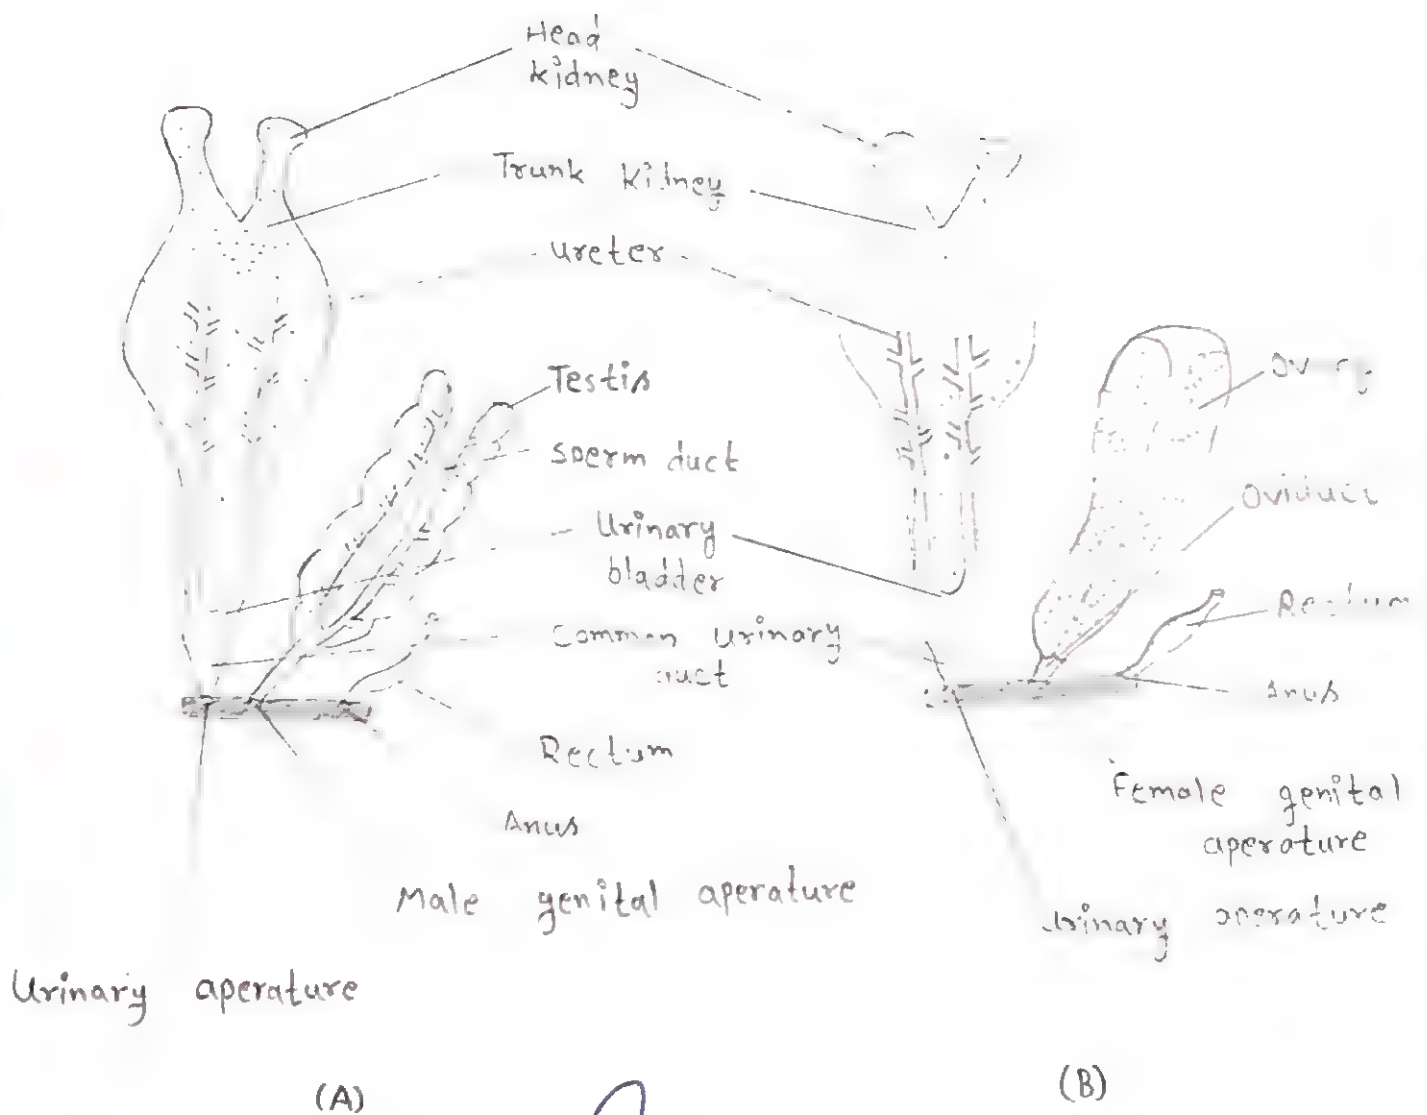 Head
kidney
Trunk kidney
ureter
Testis
sperm duct
Urinary
bladder
Common urinary
duct
Rectum
Anus
Male genital aperature
Urinary aperature
(A)
Ovary
Oviduct
Rectum
Anus
Female genital
aperature
Urinary aperature
(B)